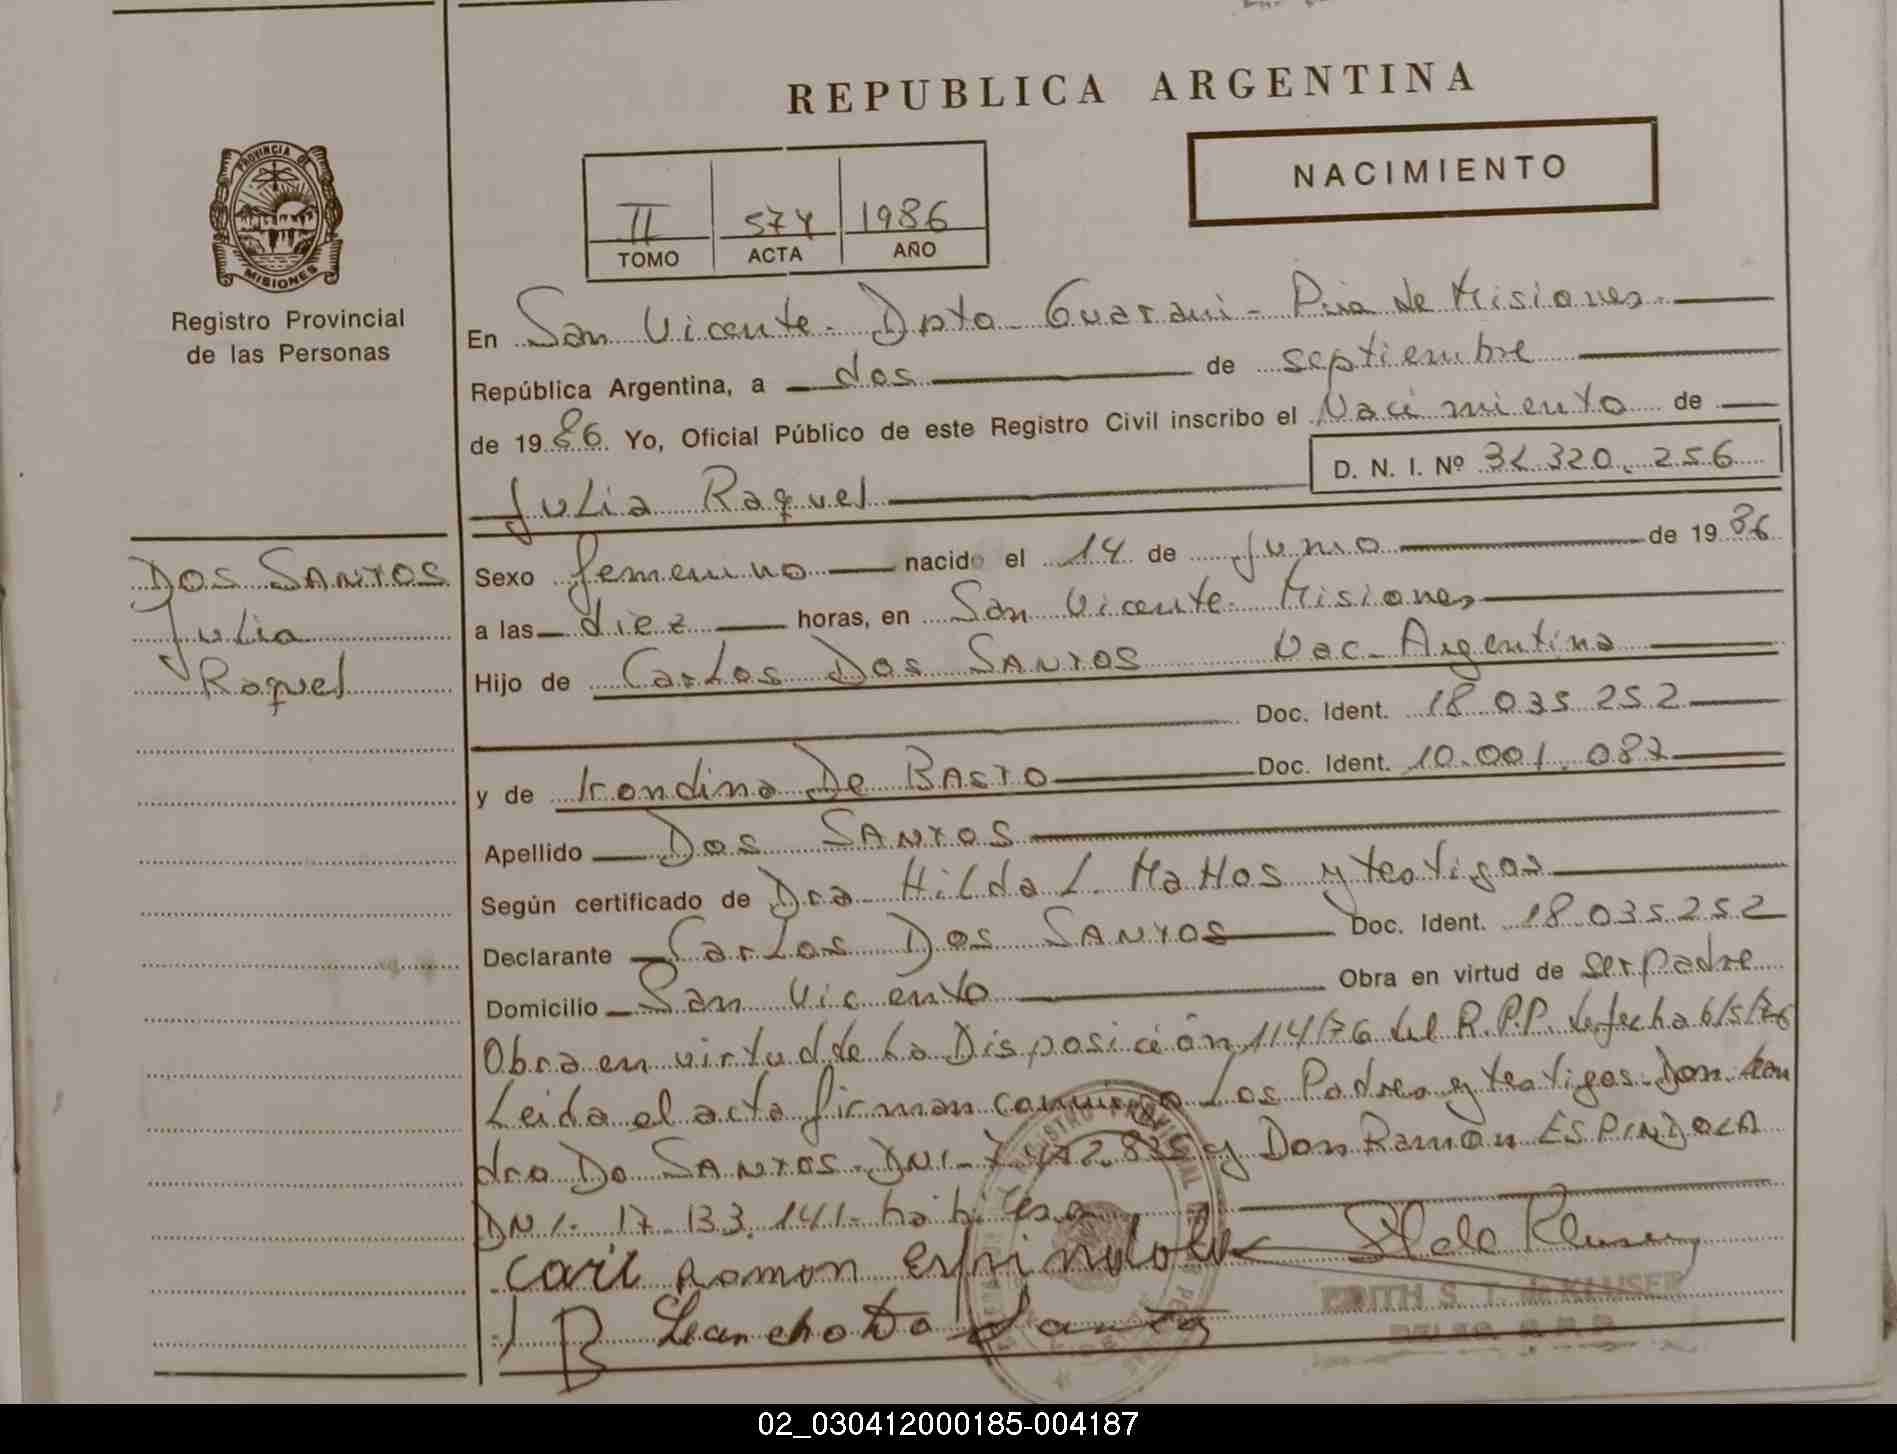 REPUBLICA ARGENTINA
NACIMIENTO
PROVINCIA DE
MISIONES
Registro Provincial
de las Personas
II 574 1986
TOMO ACTA AÑO
En San Vicente - Dpto Guarani - Pcia de Misiones
República Argentina, a dos de septiembre
de 1986. Yo, Oficial Público de este Registro Civil inscribo el Nacimiento de
Julia Raquel
D. N. I. Nº 32.320.256
DOS SANTOS
Julia
Raquel
Sexo femenino nacido el 14 de Junio de 1986
a las diez horas, en San Vicente - Misiones
Hijo de Carlos Dos SANTOS Nac. Argentina
Doc. Ident. 18.035.252
y de Irondina De BASTO Doc. Ident. 10.001.087
Apellido Dos SANTOS
Según certificado de Dra Hilda L. Mattos y testigos
Declarante Carlos Dos SANTOS Doc. Ident. 18.035.252
Domicilio San Vicente Obra en virtud de ser padre
Obra en virtud de la Disposición 114/76 del R.P.P. de fecha 6/5/76
Leida el acta firman conmigo Los Padres y testigos Don Lean
dro Do SANTOS - DNI - 7.472.835 y Don Ramón ESPINDOLA
DNI - 17.133.141 - habiles
Ramon Espindola
Leandro Do Santos
EDITH S. T. de KLUSER
02_030412000185-004187